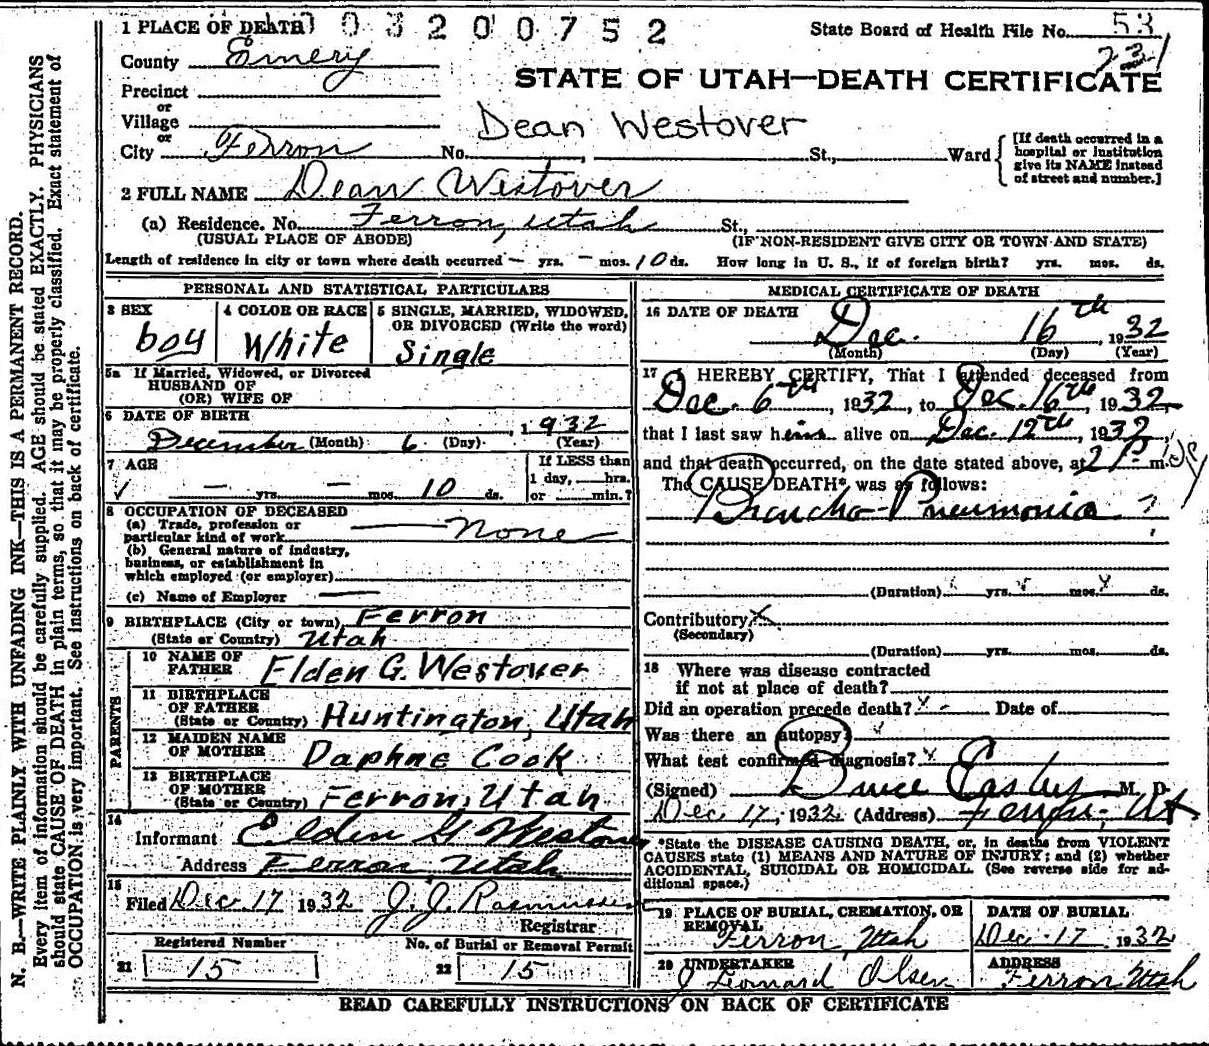 1 PLACE OF DEATH 0 3 2 0 0 7 5 2 State Board of Health File No. 53
County Emery 231
STATE OF UTAH—DEATH CERTIFICATE
Precinct
or
Village
or
Dean Westover
City Ferron No. , St., Ward [If death occurred in a hospital or institution give its NAME instead of street and number.]
2 FULL NAME Dean Westover
(a) Residence. No. Ferron, Utah St.,
(USUAL PLACE OF ABODE) (IF NON-RESIDENT GIVE CITY OR TOWN AND STATE)
Length of residence in city or town where death occurred — yrs. — mos. 10 ds. How long in U. S., if of foreign birth? yrs. mos. ds.
PERSONAL AND STATISTICAL PARTICULARS
3 SEX
boy
4 COLOR OR RACE
White
5 SINGLE, MARRIED, WIDOWED, OR DIVORCED (Write the word)
Single
5a If Married, Widowed, or Divorced
HUSBAND OF
(OR) WIFE OF
6 DATE OF BIRTH
December (Month) 6 (Day) , 1932 (Year)
7 AGE
— yrs. — mos. 10 ds.
If LESS than
1 day, hrs.
or min.?
8 OCCUPATION OF DECEASED
(a) Trade, profession or
particular kind of work none
(b) General nature of industry,
business, or establishment in
which employed (or employer)
(c) Name of Employer
9 BIRTHPLACE (City or town) Ferron
(State or Country) Utah
PARENTS
10 NAME OF
FATHER Elden G. Westover
11 BIRTHPLACE
OF FATHER
(State or Country) Huntington, Utah
12 MAIDEN NAME
OF MOTHER Daphne Cook
13 BIRTHPLACE
OF MOTHER
(State or Country) Ferron, Utah
14
Informant Elden G Westover
Address Ferron Utah
15
Filed Dec. 17 1932 J. J. Rasmussen
Registrar
Registered Number No. of Burial or Removal Permit
21 15 22 15
MEDICAL CERTIFICATE OF DEATH
16 DATE OF DEATH
Dec. 16th, 1932
(Month) (Day) (Year)
17 I HEREBY CERTIFY, That I attended deceased from
Dec. 6th, 1932, to Dec. 16th, 1932,
that I last saw him alive on Dec. 12th, 1932,
and that death occurred, on the date stated above, at 2 P. m.
The CAUSE DEATH*, was as follows:
Broncho-Pneumonia ?
(Duration) yrs. mos. ds.
Contributory
(Secondary)
(Duration) yrs. mos. ds.
18 Where was disease contracted
if not at place of death?
Did an operation precede death? Date of
Was there an autopsy?
What test confirmed diagnosis?
(Signed) Bruce Easley M. D.
Dec 17, 1932 (Address) Ferron, Ut
*State the DISEASE CAUSING DEATH, or, in deaths from VIOLENT
CAUSES state (1) MEANS AND NATURE OF INJURY; and (2) whether
ACCIDENTAL, SUICIDAL OR HOMICIDAL. (See reverse side for ad-
ditional space.)
19 PLACE OF BURIAL, CREMATION, OR
REMOVAL
Ferron, Utah
DATE OF BURIAL
Dec. 17 1932
20 UNDERTAKER
J Leonard Olsen
ADDRESS
Ferron Utah
READ CAREFULLY INSTRUCTIONS ON BACK OF CERTIFICATE
N. B.—WRITE PLAINLY WITH UNFADING INK—THIS IS A PERMANENT RECORD.
Every item of information should be carefully supplied. AGE should be stated EXACTLY. PHYSICIANS
should state CAUSE OF DEATH in plain terms, so that it may be properly classified. Exact statement of
OCCUPATION is very important. See instructions on back of certificate.